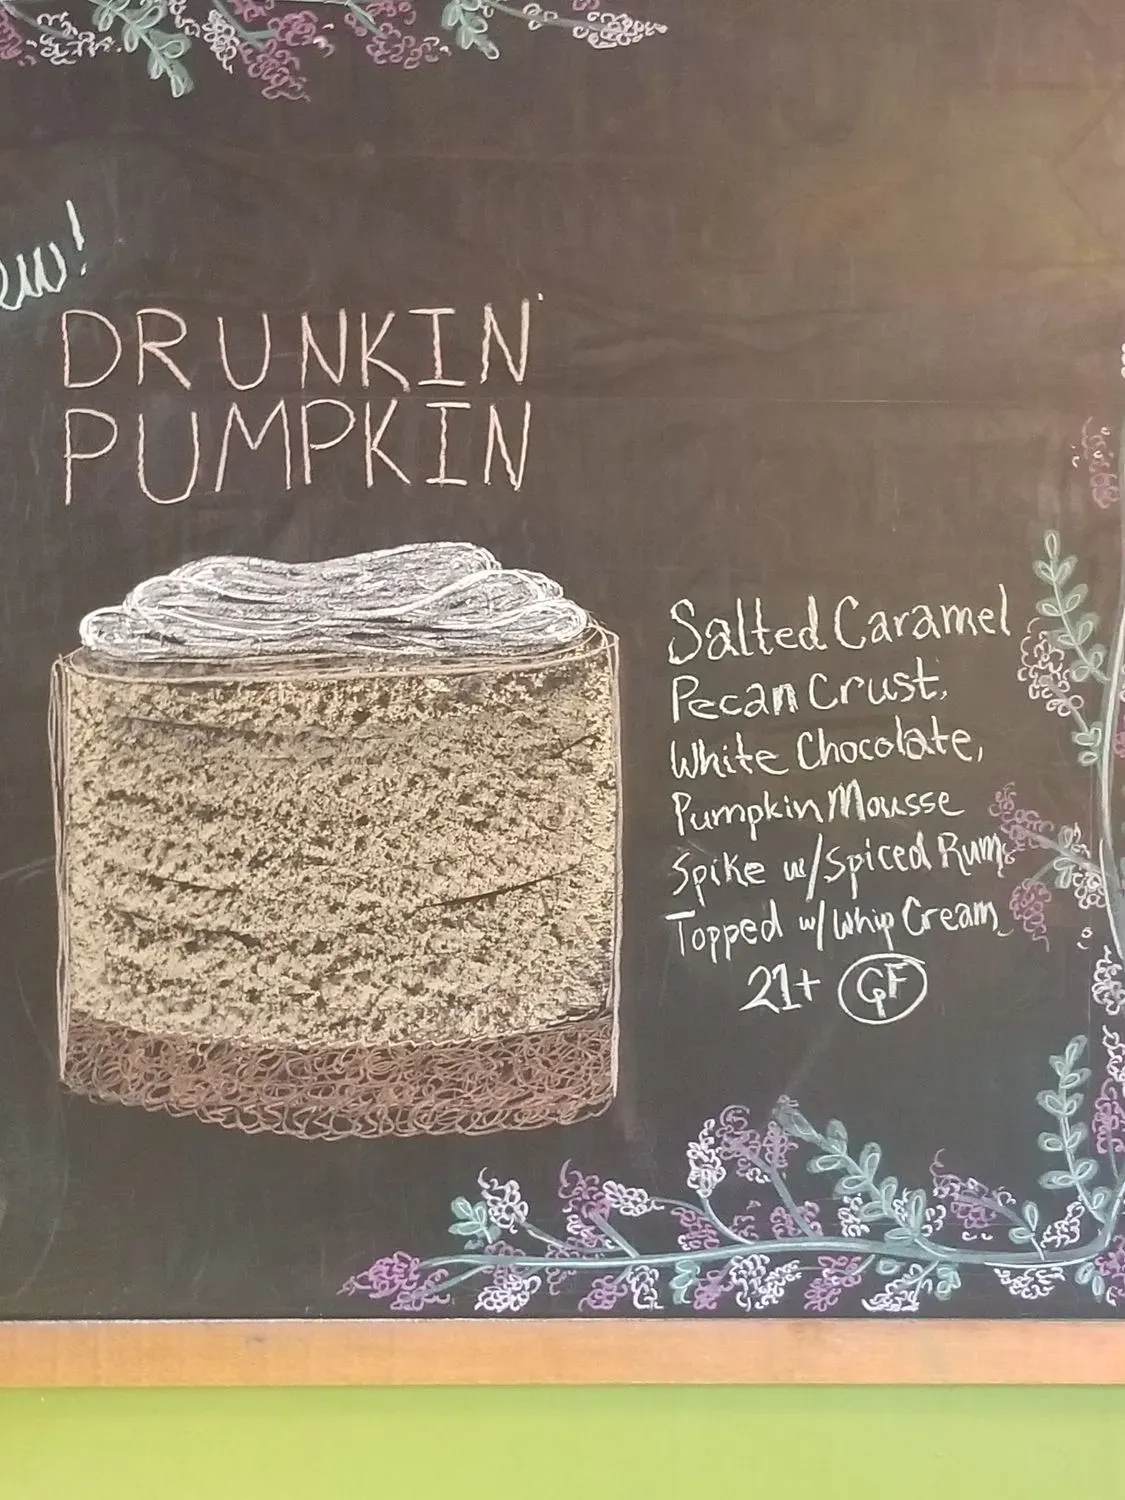 ew!
DRUNKIN'
PUMPKIN
Salted Caramel
Pecan Crust,
White Chocolate,
Pumpkin Mousse
Spike w/Spiced Rum,
Topped w/Whip Cream
21+ GF